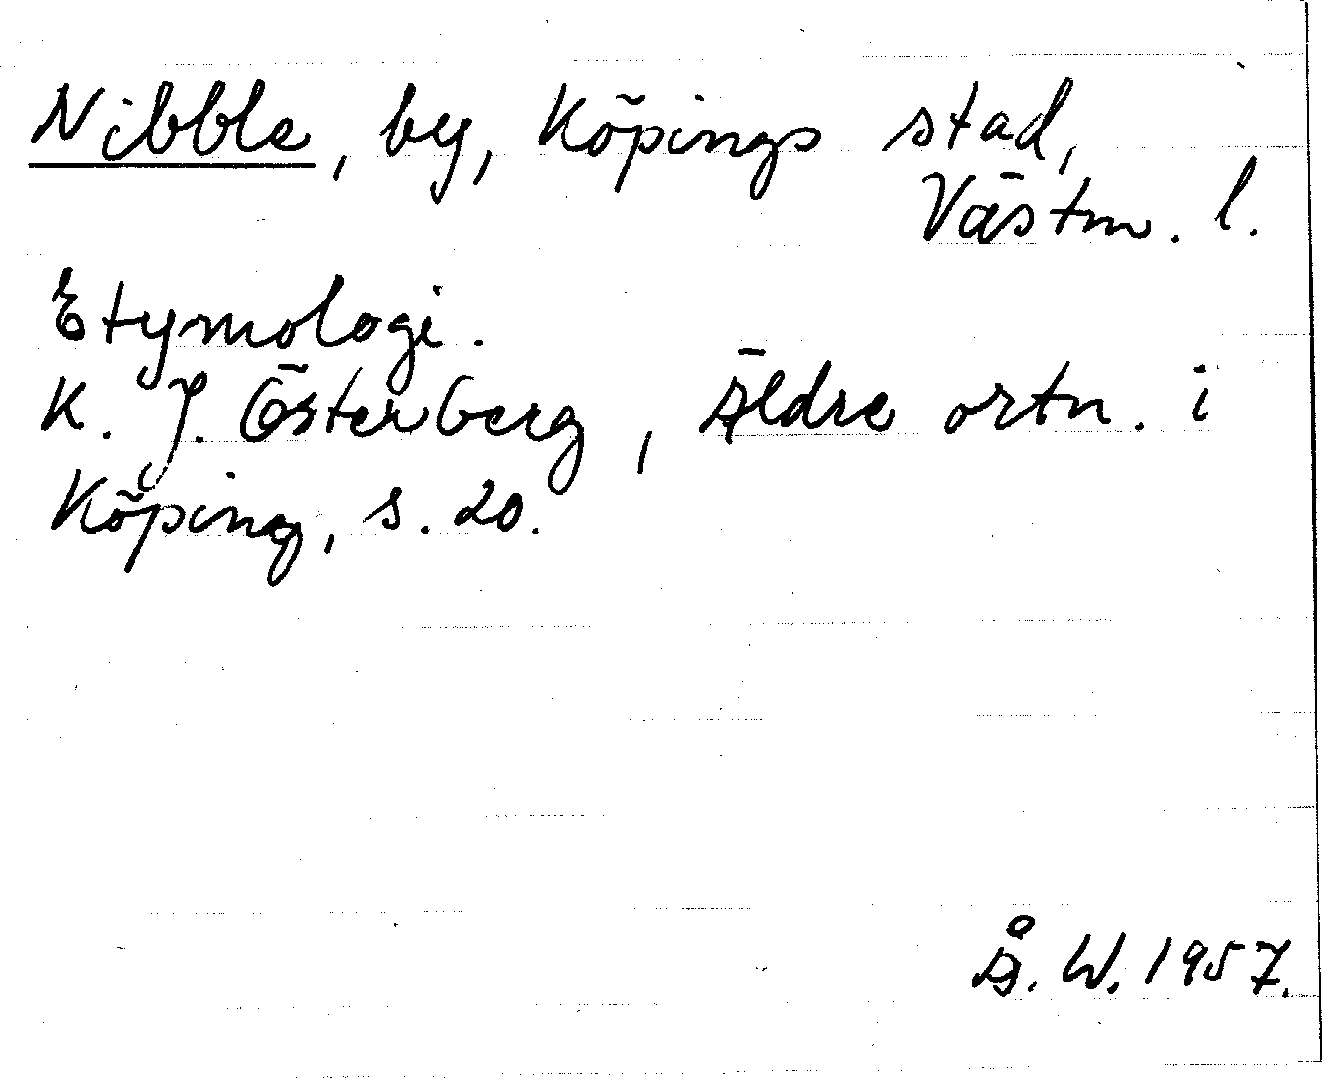 Nibble, by, Köpings stad,
Västm. l.
Etymologi.
K. J. Österberg, Äldre ortn. i
Köping, s. 20.
Å. W. 1957.